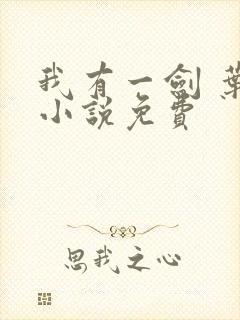 我有一劍 葉
小說免費
思我之心